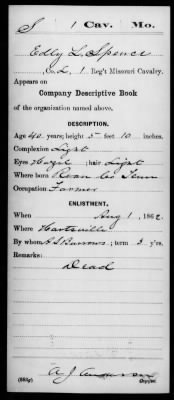 S 1 Cav. Mo.
Edly L. Spence
, Co. L, 1 Reg't Missouri Cavalry.
Appears on
Company Descriptive Book
of the organization named above.
DESCRIPTION.
Age 40 years; height 5 feet 10 inches.
Complexion Light
Eyes Hazel ; hair Light
Where born Roan Co Tenn
Occupation Farmer
ENLISTMENT.
When Aug 1, 1862.
Where Hartsville
By whom Burrows; term 3 y'rs.
Remarks:
Dead
A J Anderson
(383g) Copyist.